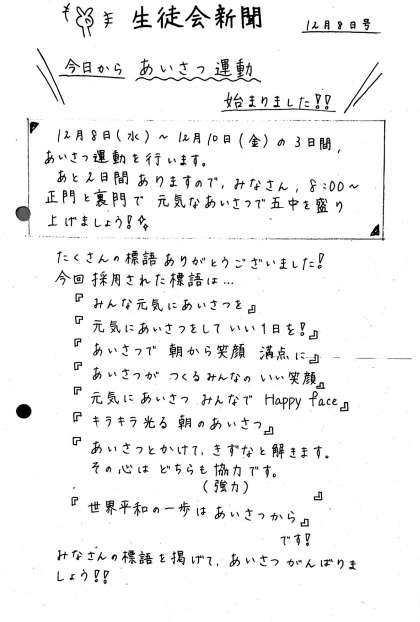 生徒会新聞
12月8日号
今日から あいさつ運動
始まりました!!
12月8日(水)~12月10日(金)の3日間,
あいさつ運動を行います。
あと2日間ありますので,みなさん,8:00~
正門と裏門で 元気なあいさつで五中を盛り
上げましょう!
たくさんの標語ありがとうございました!
今回採用された標語は…
『みんな元気にあいさつを』
『元気にあいさつをして いい1日を!』
『あいさつで 朝から笑顔 満点に』
『あいさつが つくるみんなの いい笑顔』
『元気に あいさつ みんなで Happy face』
『キラキラ光る 朝の あいさつ』
『あいさつとかけて,きずなと解きます。
その心は どちらも協力です。
(強力)
』
『世界平和の一歩は あいさつから』
です!
みなさんの標語を掲げて,あいさつがんばりま
しょう!!